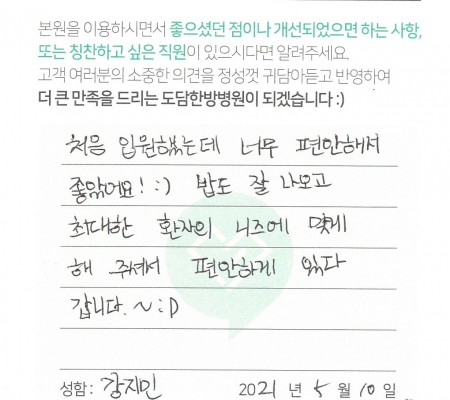 본원을 이용하시면서 좋으셨던 점이나 개선되었으면 하는 사항,
또는 칭찬하고 싶은 직원이 있으시다면 알려주세요.
고객 여러분의 소중한 의견을 정성껏 귀담아듣고 반영하여
더 큰 만족을 드리는 도담한방병원이 되겠습니다 :)
처음 입원했는데 너무 편안해서
좋았어요! :) 밥도 잘 나오고
최대한 환자의 니즈에 맞게
해 주셔서 편안하게 있다
갑니다. ~ :D
성함 : 강지민 2021 년 5 월 10 일